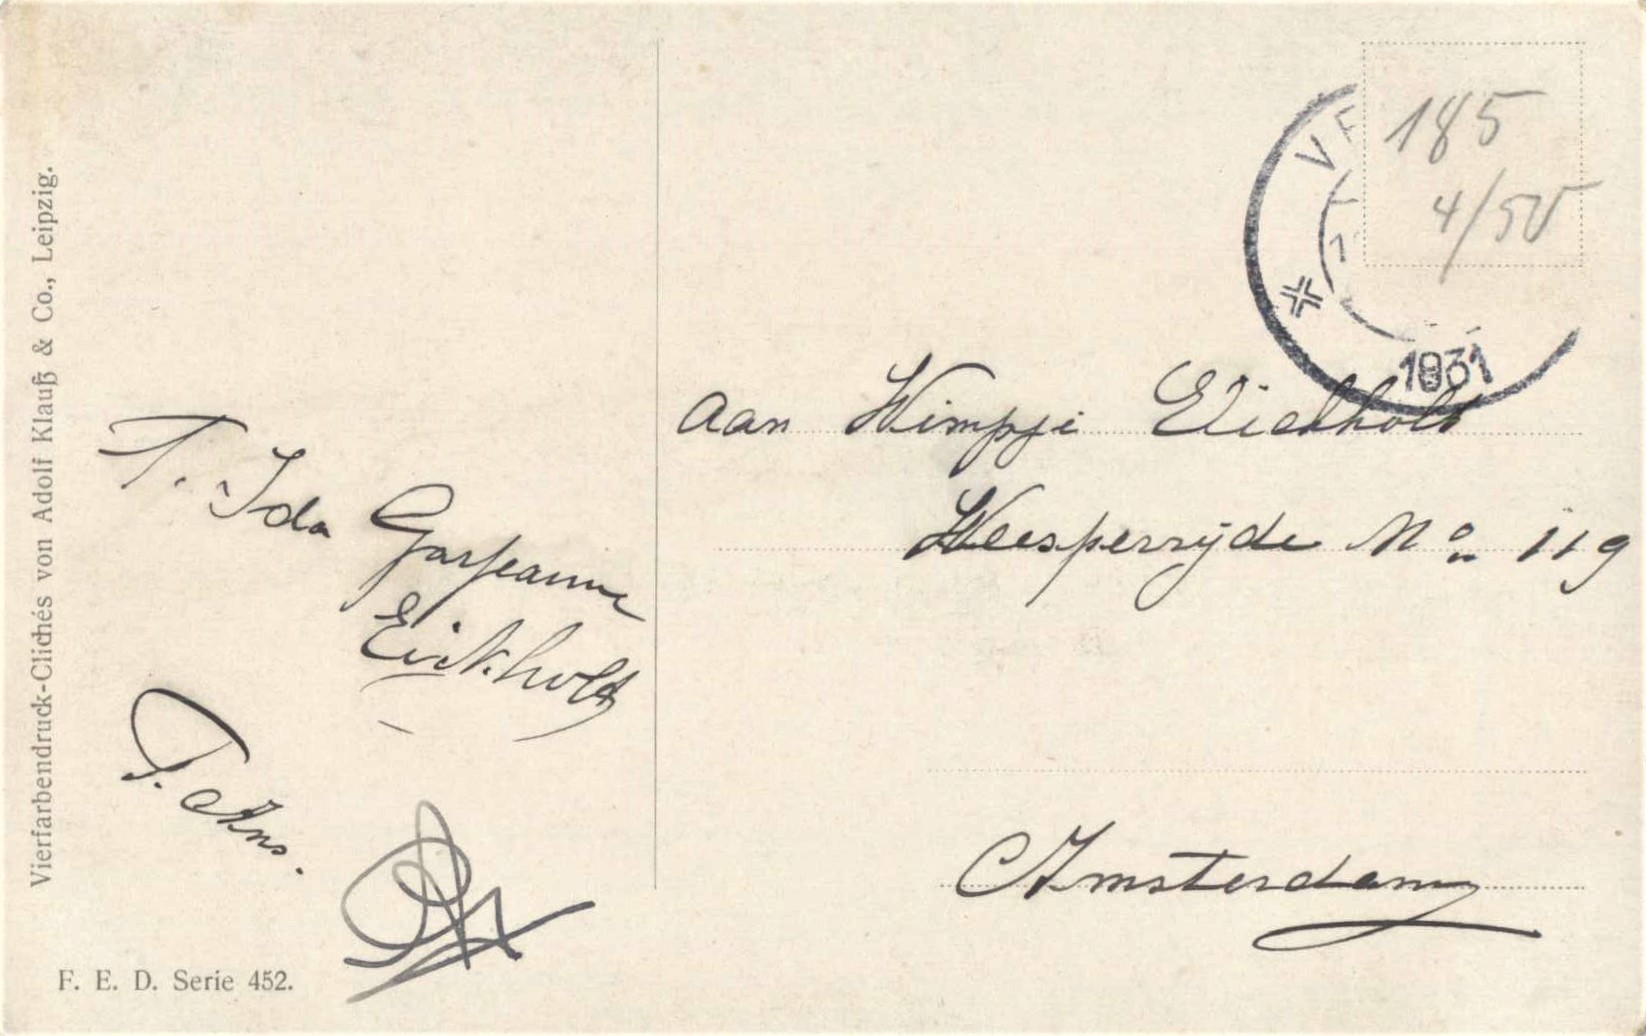 Vierfarbendruck-Clichés von Adolf Klauß & Co., Leipzig.
T. Ida
Eickholt
T. Ans.
F. E. D. Serie 452.
185
4/50
1931
aan Wimpje Eickholt
Weesperzijde No 119
Amsterdam